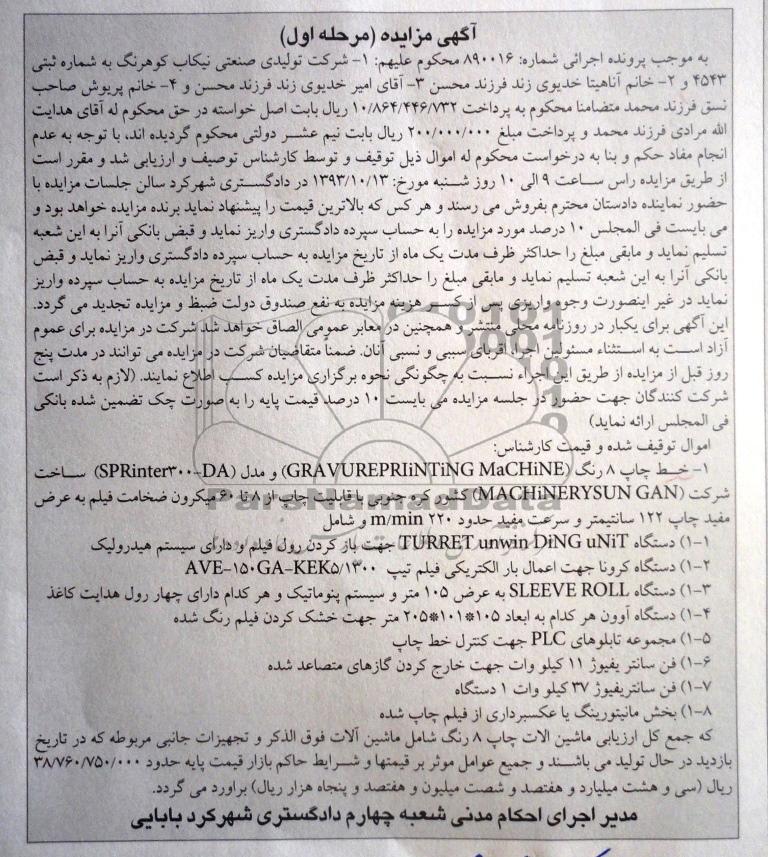 آگهی مزایده (مرحله اول)
به موجب پرونده اجرائی شماره: ۸۹۰۰۱۶ محکوم علیهم: ۱- شرکت تولیدی صنعتی نیکاب کوهرنگ به شماره ثبتی
۴۵۴۳ و ۲- خانم آناهیتا خدیوی زند فرزند محسن ۳- آقای امیر خدیوی زند فرزند محسن و ۴- خانم پریوش صاحب
نسق فرزند محمد متضامنا محکوم به پرداخت ۱۰/۸۶۴/۴۴۶/۷۳۲ ریال بابت اصل خواسته در حق محکوم له آقای هدایت
الله مرادی فرزند محمد و پرداخت مبلغ ۲۰۰/۰۰۰/۰۰۰ ریال بابت نیم عشر دولتی محکوم گردیده اند، با توجه به عدم
انجام مفاد حکم و بنا به درخواست محکوم له اموال ذیل توقیف و توسط کارشناس توصیف و ارزیابی شد و مقرر است
از طریق مزایده راس ساعت ۹ الی ۱۰ روز شنبه مورخ: ۱۳۹۳/۱۰/۱۳ در دادگستری شهرکرد سالن جلسات مزایده با
حضور نماینده دادستان محترم بفروش می رسند و هر کس که بالاترین قیمت را پیشنهاد نماید برنده مزایده خواهد بود و
می بایست فی المجلس ۱۰ درصد مورد مزایده را به حساب سپرده دادگستری واریز نماید و قبض بانکی آنرا به این شعبه
تسلیم نماید و مابقی مبلغ را حداکثر ظرف مدت یک ماه از تاریخ مزایده به حساب سپرده دادگستری واریز نماید و قبض
بانکی آنرا به این شعبه تسلیم نماید و مابقی مبلغ را حداکثر ظرف مدت یک ماه از تاریخ مزایده به حساب سپرده واریز
نماید در غیر اینصورت وجوه واریزی پس از کسر هزینه مزایده به نفع صندوق دولت ضبط و مزایده تجدید می گردد.
این آگهی برای یکبار در روزنامه محلی منتشر و همچنین در معابر عمومی الصاق خواهد شد شرکت در مزایده برای عموم
آزاد است به استثناء مسئولین اجرا، اقربای سببی و نسبی آنان. ضمناً متقاضیان شرکت در مزایده می توانند در مدت پنج
روز قبل از مزایده از طریق این اجراء نسبت به چگونگی نحوه برگزاری مزایده کسب اطلاع نمایند. (لازم به ذکر است
شرکت کنندگان جهت حضور در جلسه مزایده می بایست ۱۰ درصد قیمت پایه را به صورت چک تضمین شده بانکی
فی المجلس ارائه نماید)
اموال توقیف شده و قیمت کارشناس:
۱- خط چاپ ۸ رنگ (GRAVUREPRIiNTiNG MaCHiNE) و مدل (SPRinter۳۰۰-DA) ساخت
شرکت (MACHiNERYSUN GAN) کشور کره جنوبی با قابلیت چاپ از ۸ تا ۶۰ میکرون ضخامت فیلم به عرض
مفید چاپ ۱۲۲ سانتیمتر و سرعت مفید حدود ۲۲۰ m/min و شامل
۱-۱) دستگاه TURRET unwin DiNG uNiT جهت باز کردن رول فیلم و دارای سیستم هیدرولیک
۱-۲) دستگاه کرونا جهت اعمال بار الکتریکی فیلم تیپ AVE-۱۵۰GA-KEK۵/۱۳۰۰
۱-۳) دستگاه SLEEVE ROLL به عرض ۱۰۵ متر و سیستم پنوماتیک و هر کدام دارای چهار رول هدایت کاغذ
۱-۴) دستگاه آوون هر کدام به ابعاد ۱۰۵*۱۰۱*۲۰۵ متر جهت خشک کردن فیلم رنگ شده
۱-۵) مجموعه تابلوهای PLC جهت کنترل خط چاپ
۱-۶) فن سانتر یفیوژ ۱۱ کیلو وات جهت خارج کردن گازهای متصاعد شده
۱-۷) فن سانتریفیوژ ۳۷ کیلو وات ۱ دستگاه
۱-۸) بخش مانیتورینگ یا عکسبرداری از فیلم چاپ شده
که جمع کل ارزیابی ماشین الات چاپ ۸ رنگ شامل ماشین آلات فوق الذکر و تجهیزات جانبی مربوطه که در تاریخ
بازدید در حال تولید می باشند و جمیع عوامل موثر بر قیمتها و شرایط حاکم بازار قیمت پایه حدود ۳۸/۷۶۰/۷۵۰/۰۰۰
ریال (سی و هشت میلیارد و هفتصد و شصت میلیون و هفتصد و پنجاه هزار ریال) براورد می گردد.
مدیر اجرای احکام مدنی شعبه چهارم دادگستری شهرکرد بابایی
ParsNamadData